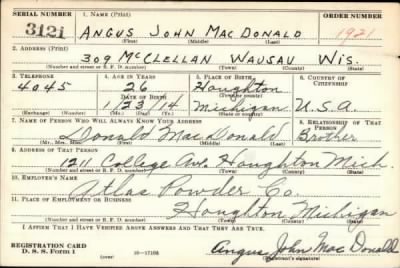 SERIAL NUMBER 1. NAME (Print) ORDER NUMBER
3121 ANGUS JOHN MACDONALD 1921
(First) (Middle) (Last)
2. ADDRESS (Print)
309 McCLELLAN WAUSAU WIS.
(Number and street or R. F. D. number) (Town) (County) (State)
3. TELEPHONE 4. AGE IN YEARS 5. PLACE OF BIRTH 6. COUNTRY OF CITIZENSHIP
4045 26 Houghton
DATE OF BIRTH (Town or county)
1/23/14 Michigan U.S.A.
(Exchange) (Number) (Mo.) (Day) (Yr.) (State or country)
7. NAME OF PERSON WHO WILL ALWAYS KNOW YOUR ADDRESS 8. RELATIONSHIP OF THAT PERSON
Donald MacDonald Brother
(Mr., Mrs., Miss) (First) (Middle) (Last)
9. ADDRESS OF THAT PERSON
1211 College Ave. Houghton Mich.
(Number and street or R. F. D. number) (Town) (County) (State)
10. EMPLOYER'S NAME
Atlas Powder Co.
11. PLACE OF EMPLOYMENT OR BUSINESS
Houghton Michigan
(Number and street or R. F. D. number) (Town) (County) (State)
I AFFIRM THAT I HAVE VERIFIED ABOVE ANSWERS AND THAT THEY ARE TRUE.
REGISTRATION CARD
D. S. S. Form 1 (over) 16-17105 Angus John MacDonald
(Registrant's signature)